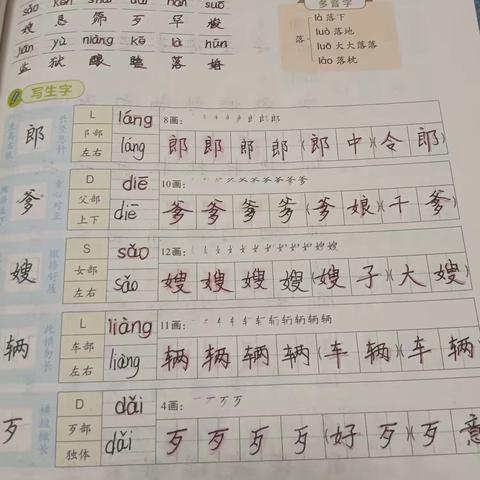 sǎo kěn shāi dǎi hǎn suō
嫂 恳 筛 歹 罕 梭
jiān yù niàng kē là hūn
监 狱 酿 瞌 落 婚
多音字
là 落下
luò 落地
落 luō 大大落落
lào 落枕
写生字
郎 L láng 8画：
阝部 láng 郎 郎 郎 郎（郎 中）（令 郎）
左右
爹 D diē 10画：
父部 diē 爹 爹 爹 爹（爹 娘）（干 爹）
上下
嫂 S sǎo 12画：
女部 sǎo 嫂 嫂 嫂 嫂（嫂 子）（大 嫂）
左右
辆 L liàng 11画：
车部 liàng 辆 辆 辆 辆（车 辆）（车 辆
左右
歹 D dǎi 4画：
歹部 dǎi 歹 歹 歹 歹（好 歹）（歹 意
独体